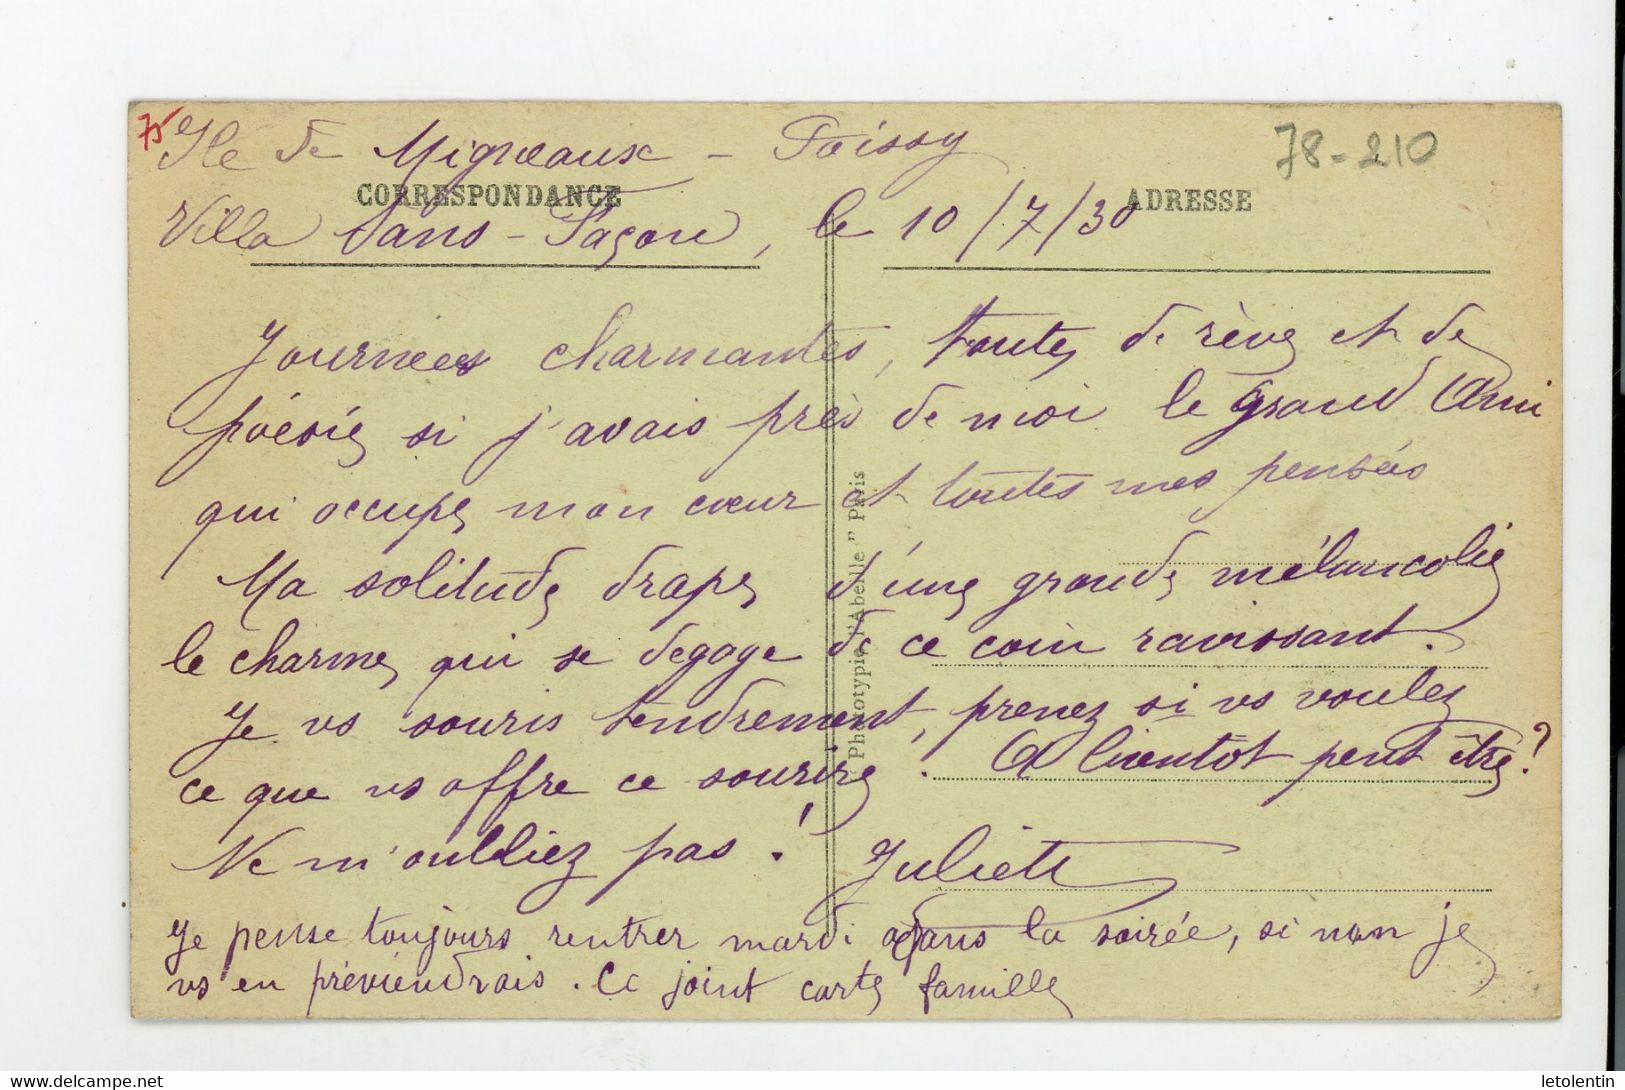 75
Ile de Migneaux - Poissy
78-210
CORRESPONDANCE
ADRESSE
Villa Sans-Façon, le 10/7/30
Journées charmantes, toutes de rêve et de
poésie si j'avais près de moi le grand Ami
qui occupe mon cœur et toutes mes pensées
Ma solitude drape d'une grande mélancolie
le charme qui se degage de ce coin ravissant.
Je vs souris tendrement, prenez si vs voulez
ce que vs offre ce sourire. A bientôt peut être?
Ne m'oubliez pas! Juliette
Je pense toujours rentrer mardi dans la soirée, si non je
vs en préviendrais. Ci joint carte famille
Phototypie "l'Abeille" Paris
delcampe.net
letolentin